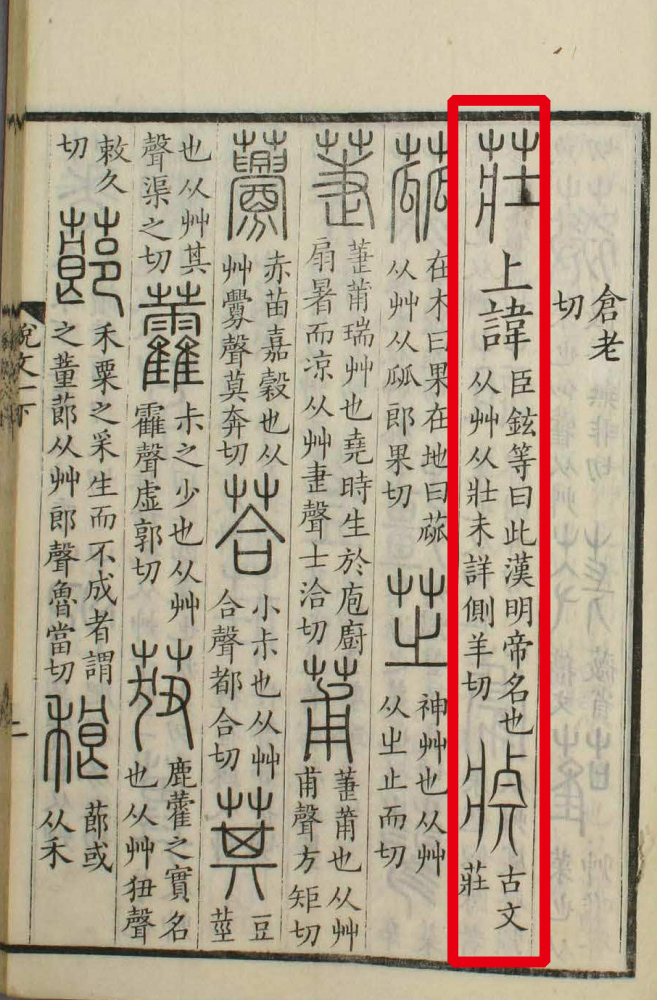 倉老切
莊上諱臣鉉等曰此漢明帝名也从艸从壯未詳側羊切 古文莊
蓏在木曰果在地曰蓏从艸从㼌郎果切芝神艸也从艸从㞢止而切
萐萐莆瑞艸也堯時生於庖廚扇暑而凉从艸疌聲士洽切莆萐莆也从艸甫聲方矩切
虋赤苗嘉穀也从艸釁聲莫奔切荅小尗也从艸合聲都合切萁豆莖
也从艸其聲渠之切藿尗之少也从艸靃聲虛郭切莥鹿藿之實名也从艸狃聲
敕久切蓈禾粟之采生而不成者謂之董蓈从艸郎聲魯當切稂蓈或从禾
說文一下
二